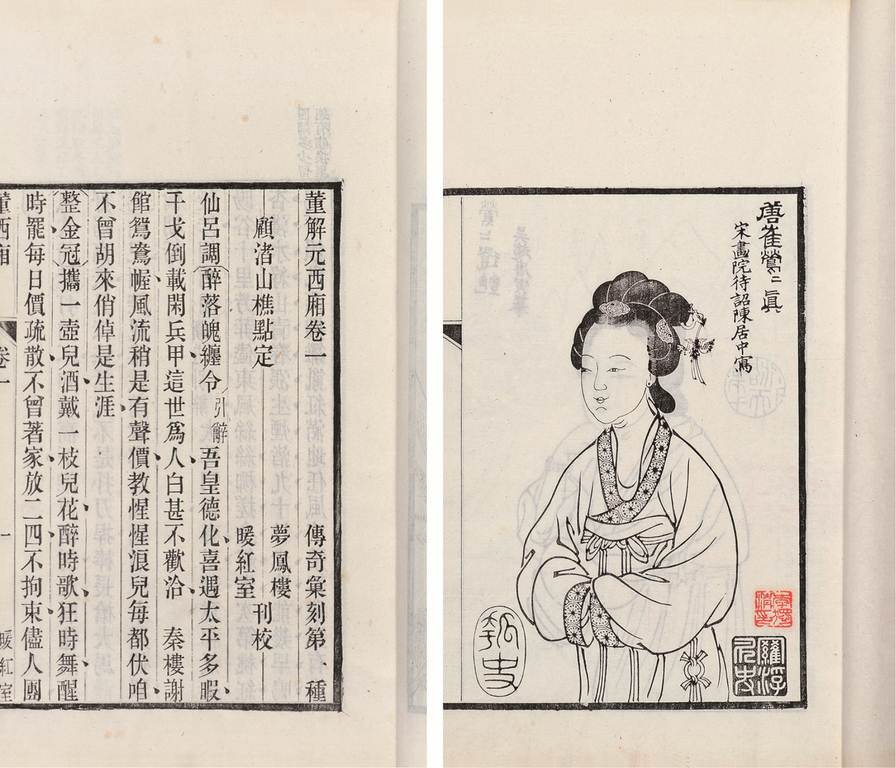 唐崔鶯〻真
宋畫院待詔陳居中寫
羅浮
董解元西廂卷一 傳奇彙刻第一種
顧渚山樵點定 夢鳳樓
暖紅室 刊校
仙呂調 醉落魄纏令 引辭 吾皇德化喜遇太平多暇
干戈倒載閑兵甲這世爲人白甚不歡洽 秦樓謝
館鴛鴦幄風流稍是有聲價教惺惺浪兒每都伏咱
不曾胡來俏倬是生涯
整金冠攜一壺兒酒戴一枝兒花醉時歌狂時舞醒
時罷每日價疏散不曾著家放二四不拘束儘人團
董西廂 卷一 一 暖紅室